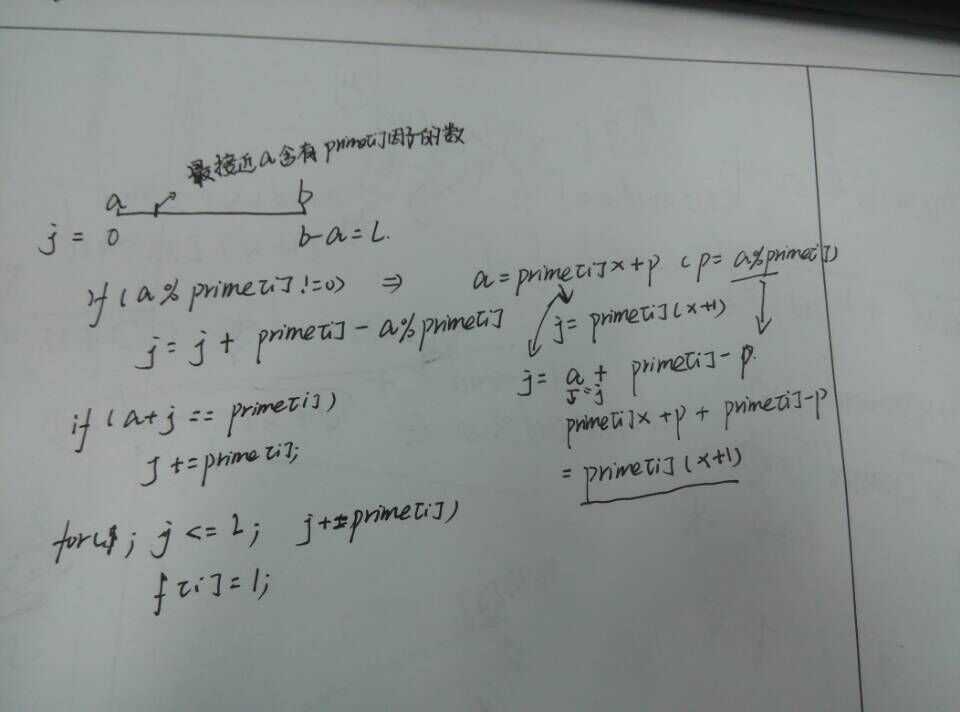 最接近a含有prime[i]因子的数
a b
j = 0 b-a=L.
if(a%prime[i]!=0) ⇒ a=prime[i]x+p (p=a%prime[i])
j=j+prime[i]-a%prime[i] j=prime[i](x+1)
j=a+prime[i]-p.
if(a+j==prime[i]) prime[i]x+p+prime[i]-p
j+=prime[i]; =prime[i](x+1)
for( ; j<=L; j+=prime[i])
f[i]=1;